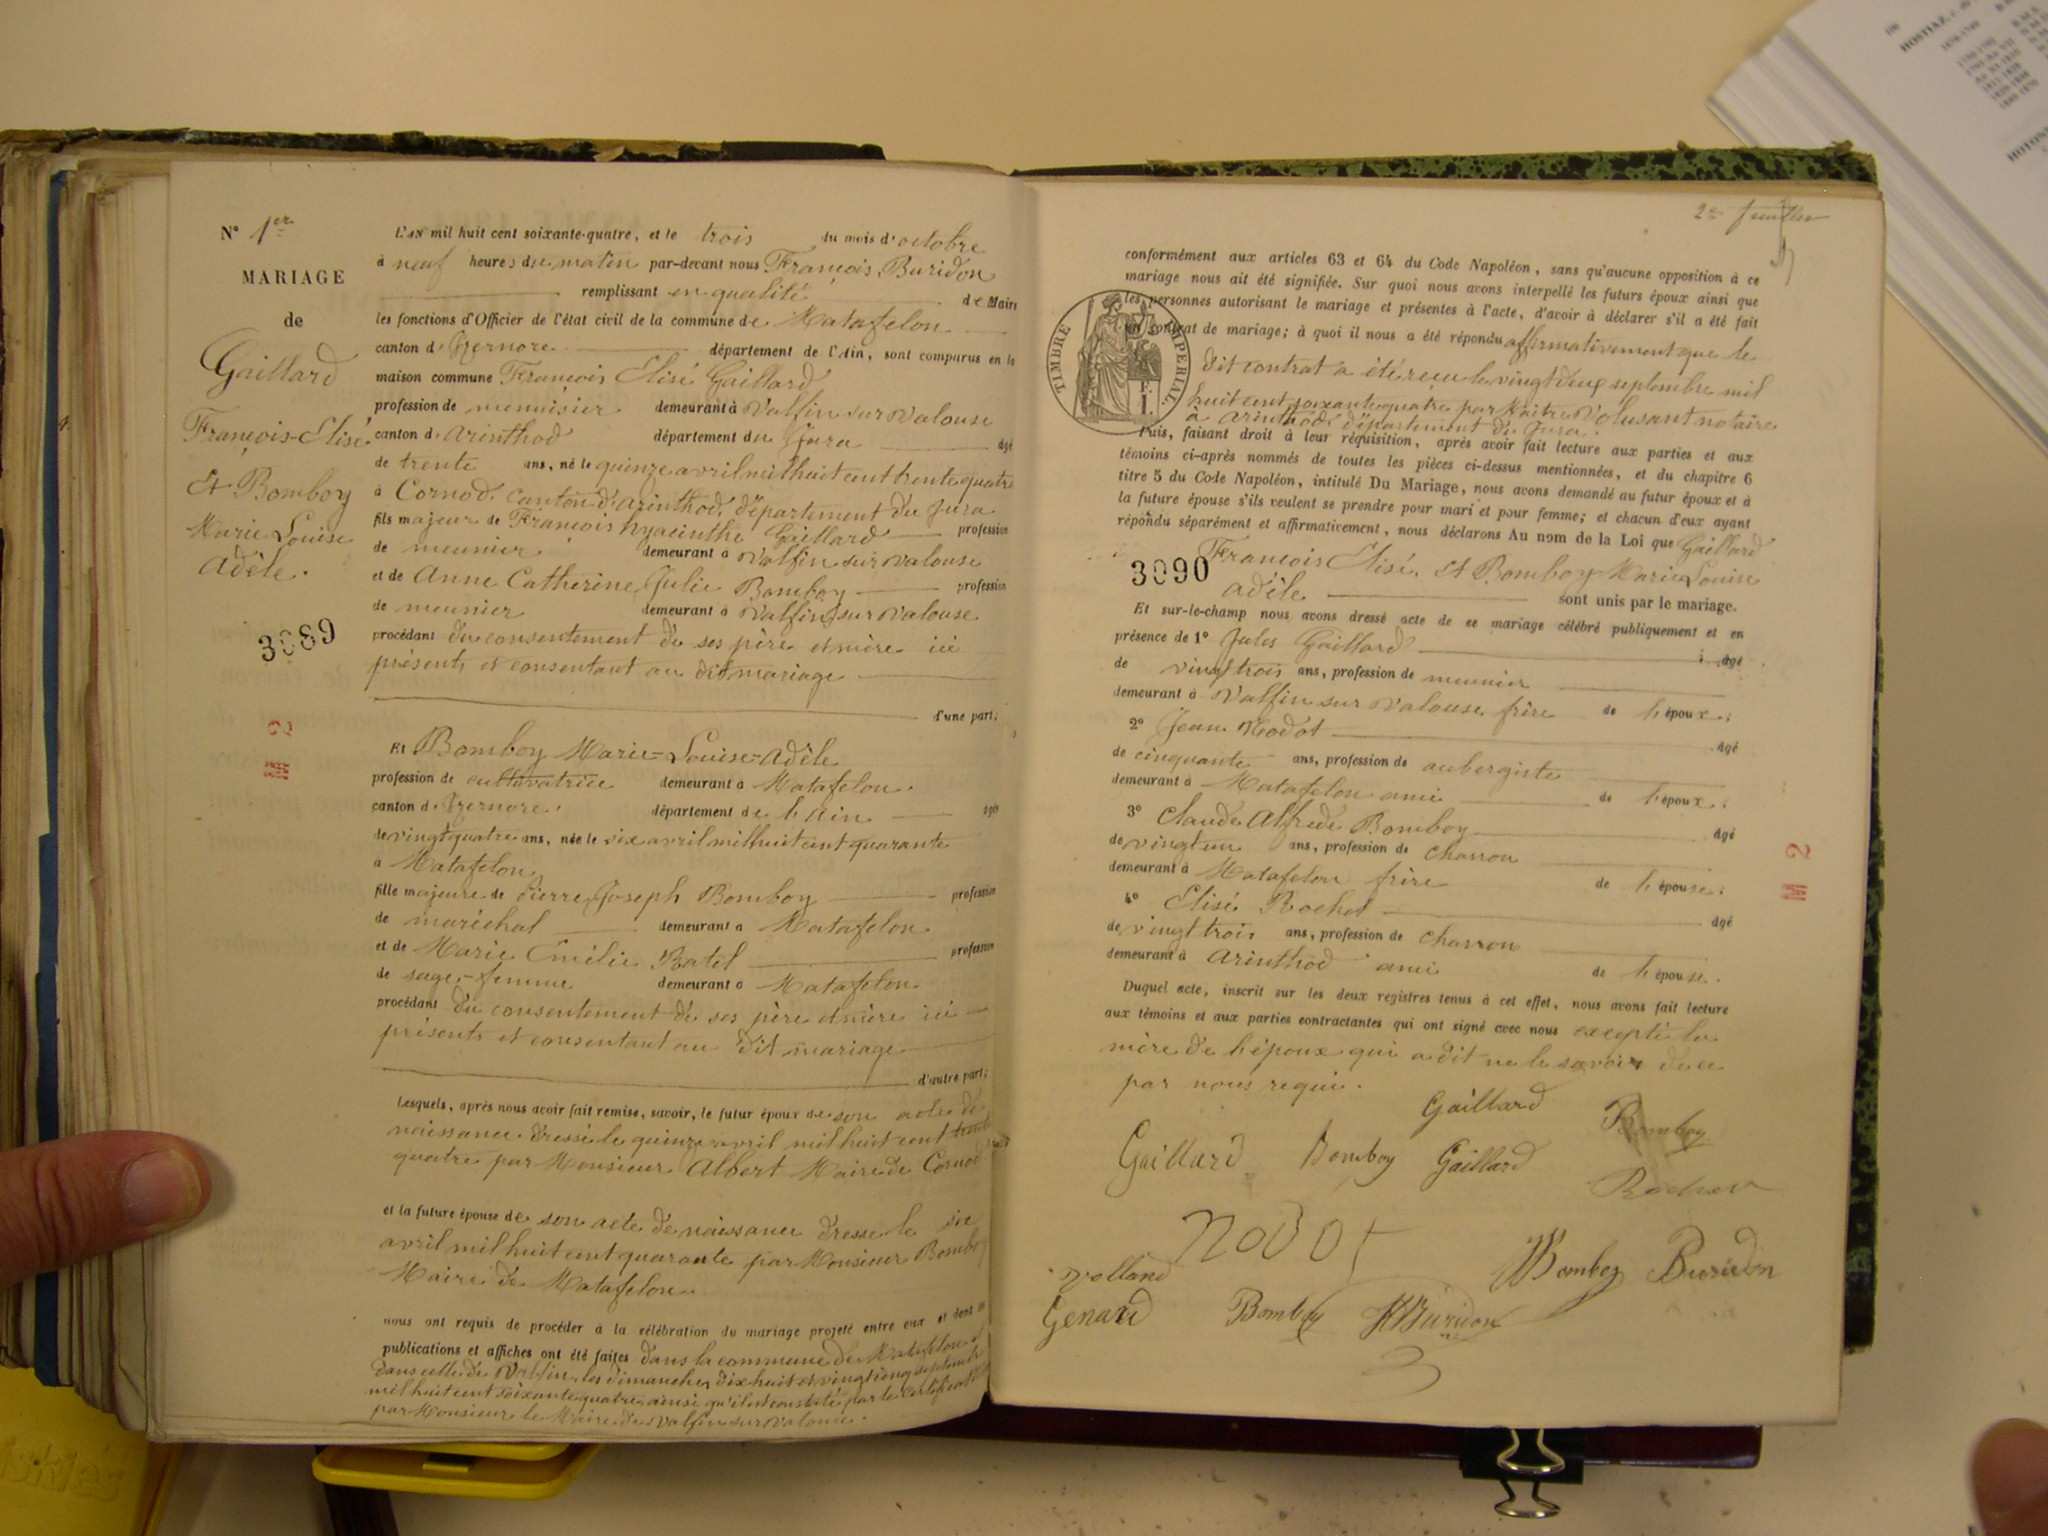 N° 1er
MARIAGE
de
Gaillard
François-Elisé
et Bomboy
Marie Louise
Adèle.
3089
M 2
L'AN mil huit cent soixante-quatre, et le trois du mois d'octobre
à neuf heures du matin par-devant nous François Buridon
remplissant en qualité de Maire
les fonctions d'Officier de l'état civil de la commune de Matafelon
canton d'Izernore département de l'Ain, sont comparus en la
maison commune François Elisé Gaillard
profession de menuisier demeurant à Valfin sur Valouse
canton d'arinthod département du Jura âgé
de trente ans, né le quinze avril mil huit cent trente quatre
à Cornod, canton d'arinthod, département du Jura
fils majeur de François hyacinthe Gaillard profession
de meunier demeurant à Valfin sur Valouse
et de Anne Catherine Julie Bomboy profession
de meunier demeurant à Valfin sur Valouse
procédant du consentement de ses père et mère ici
présents et consentant au dit mariage
d'une part;
Et Bomboy Marie-Louise-Adèle
profession de cultivatrice demeurant à Matafelon.
canton d'Izernore département de l'Ain âgée
de vingt quatre ans, née le six avril mil huit cent quarante
à Matafelon
fille majeure de Pierre Joseph Bomboy profession
de maréchal demeurant à Matafelon
et de Marie Emélie Batel profession
de sage-femme demeurant à Matafelon
procédant du consentement de ses père et mère ici
présents et consentant au dit mariage
d'autre part;
Lesquels, après nous avoir fait remise, savoir, le futur époux de son acte de
naissance dressé le quinze avril mil huit cent trente
quatre par Monsieur Albert Maire de Cornod
et la future épouse de son acte de naissance dressé le six
avril mil huit cent quarante par Monsieur Bomboy
Maire de Matafelon.
nous ont requis de procéder à la célébration du mariage projeté entre eux et dont les
publications et affiches ont été faites dans la commune de Matafelon
dans celle de Valfin les dimanches dix huit et vingt cinq septembre
mil huit cent soixante quatre ainsi qu'il est constaté par le certificat
par Monsieur le Maire de Valfin sur valouse.
2me feuillet
conformément aux articles 63 et 64 du Code Napoléon, sans qu'aucune opposition à ce
mariage nous ait été signifiée. Sur quoi nous avons interpellé les futurs époux ainsi que
les personnes autorisant le mariage et présentes à l'acte, d'avoir à déclarer s'il a été fait
un contrat de mariage; à quoi il nous a été répondu affirmativement que le
dit contrat a été reçu le vingt deux septembre mil
huit cent soixante quatre par Maitre Volusant notaire
à arinthod, département du Jura.
TIMBRE IMPERIAL
Puis, faisant droit à leur réquisition, après avoir fait lecture aux parties et aux
témoins ci-après nommés de toutes les pièces ci-dessus mentionnées, et du chapitre 6
titre 5 du Code Napoléon, intitulé Du Mariage, nous avons demandé au futur époux et à
la future épouse s'ils veulent se prendre pour mari et pour femme; et chacun d'eux ayant
répondu séparément et affirmativement, nous déclarons Au nom de la Loi que Gaillard
François Elisé, et Bomboy Marie Louise
3090
adèle sont unis par le mariage.
Et sur-le-champ nous avons dressé acte de ce mariage célébré publiquement et en
présence de 1° Jules Gaillard âgé
de vingt trois ans, profession de meunier
demeurant à Valfin sur Valouse frère de l'époux;
2° Jean Nodot âgé
de cinquante ans, profession de aubergiste
demeurant à Matafelon ami de l'époux;
3° Claude Alfrede Bomboy âgé
de vingt un ans, profession de charron
demeurant à Matafelon frère de l'épouse;
4° Elisé Rochet âgé
de vingt trois ans, profession de charron
demeurant à arinthod ami de l'épouse.
Duquel acte, inscrit sur les deux registres tenus à cet effet, nous avons fait lecture
aux témoins et aux parties contractantes qui ont signé avec nous excepté la
mère de l'époux qui a dit ne le savoir de ce
par nous requi.
Gaillard Bomboy
Gaillard Bomboy Gaillard
Rochet
Nodot
Bomboy Buridon
Genard Bomboy Buridon
M 2